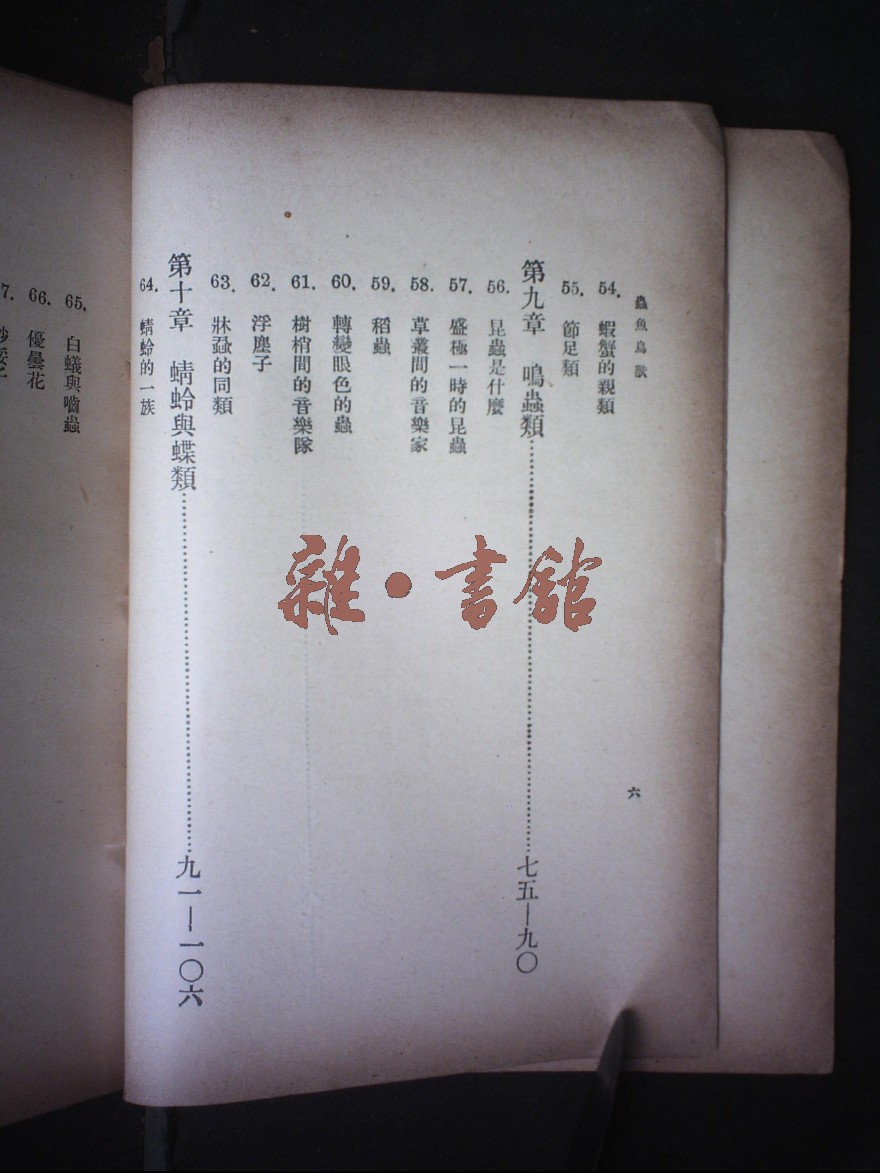 蟲魚鳥獸
54. 蝦蟹的親類
55. 節足類
第九章 鳴蟲類……七五—九〇
56. 昆蟲是什麼
57. 盛極一時的昆蟲
58. 草叢間的音樂家
59. 稻蟲
60. 轉變眼色的蟲
61. 樹梢間的音樂隊
62. 浮塵子
63. 牀蝨的同類
第十章 蜻蛉與蝶類……九一—一〇六
64. 蜻蛉的一族
六
65. 白蟻與嚙蟲
66. 優曇花
7.
雜·書館